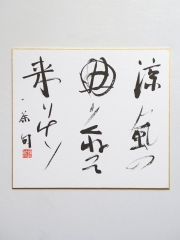 涼風の
曲りくねつて
来りけり
一茶句